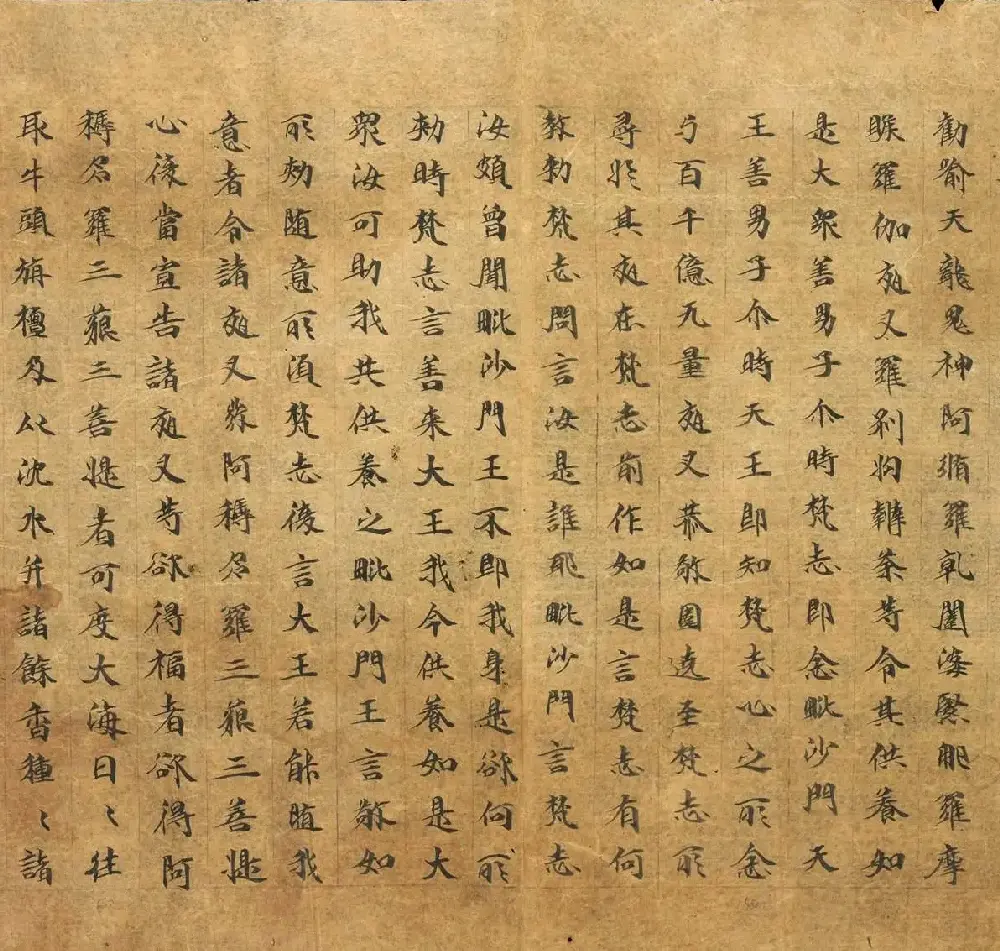 勸喻天龍鬼神阿脩羅乹闥婆緊那羅摩
睺羅伽夜叉羅刹鳩鞞荼等令其供養如
是大衆善男子尒時梵志即念毗沙門天
王善男子尒時天王即知梵志心之所念
与百千億无量夜叉恭敬圍遶至梵志所
尋於其夜在梵志前作如是言梵志有何
教勑梵志問言汝是誰耶毗沙門言梵志
汝頗曾聞毗沙門王不即我身是欲何所
勑時梵志言善来大王我今供養如是大
衆汝可助我共供養之毗沙門王言敬如
所勑随意所須梵志復言大王若能随我
意者令諸夜叉發阿耨多羅三藐三菩提
心復當宣告諸夜叉等欲得福者欲得阿
耨多羅三藐三菩提者可度大海日〻往
取牛頭旃檀及以沈水并諸餘香種〻諸